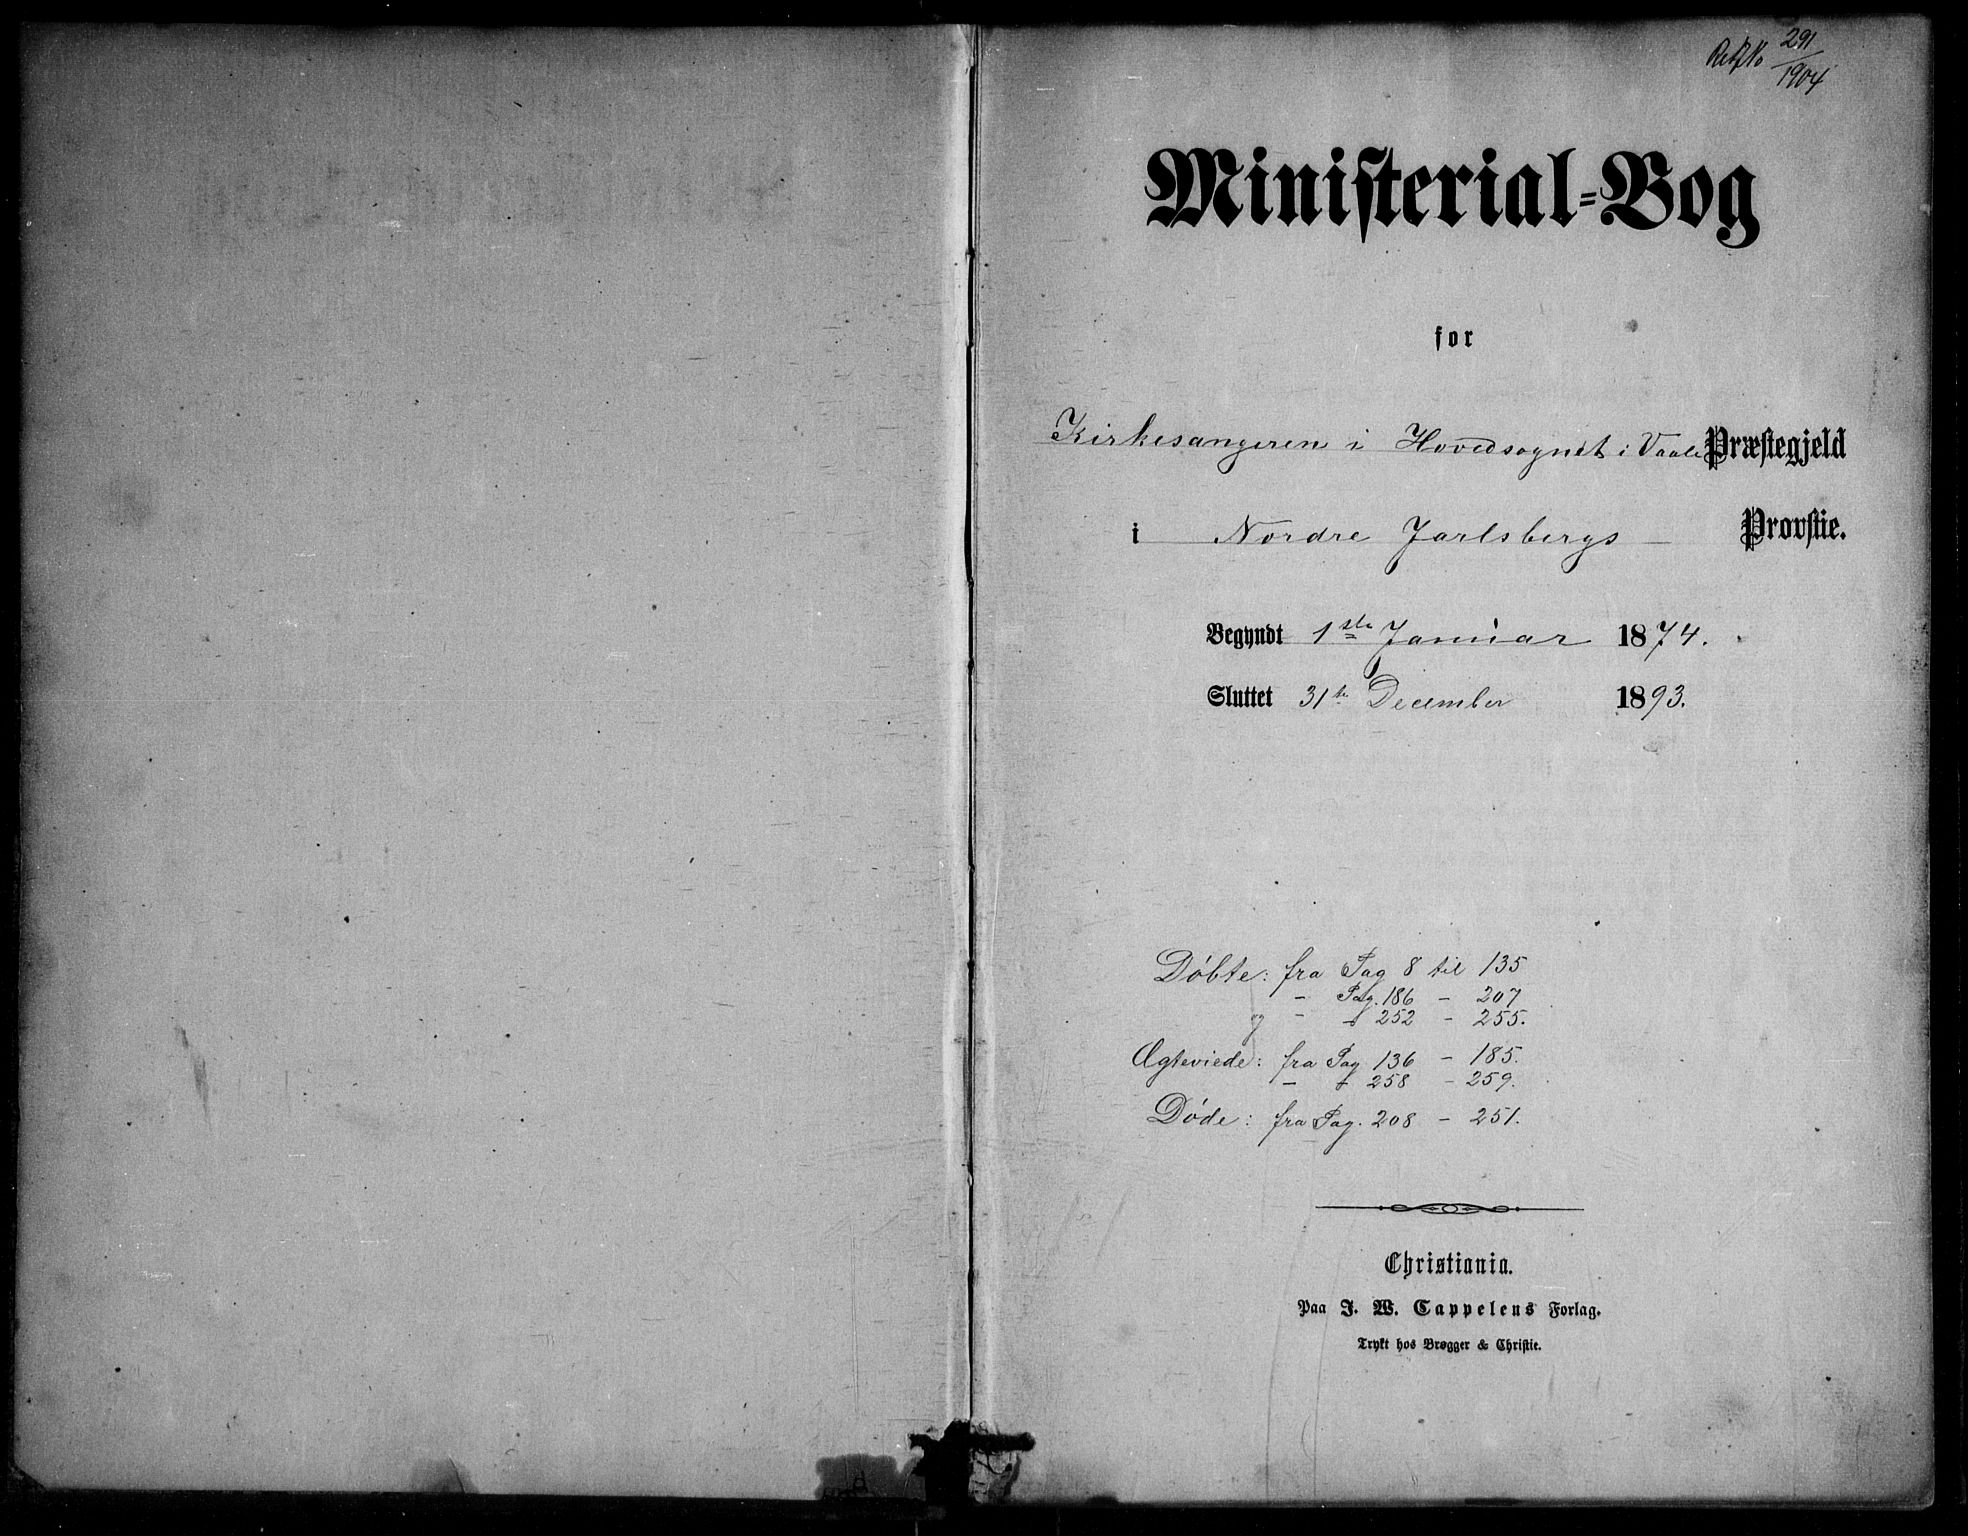 291
1904
Ministerial-Bog
for
Kirkesangeren i Hovedsognet i Vaale Præstegjeld
i Nordre Jarlsbergs — Provstie.
Begyndt 1ste Januar 1874.
Sluttet 31te December 1893.
Døbte: fra Pag 8 til 135
– Pag. 186 – 207
og – – 252 – 255.
Ægteviede: fra Pag 136 – 185.
– – 258 – 259.
Døde: fra Pag. 208 – 251.
Christiania.
Paa J. W. Cappelens Forlag.
Trykt hos Brøgger & Christie.